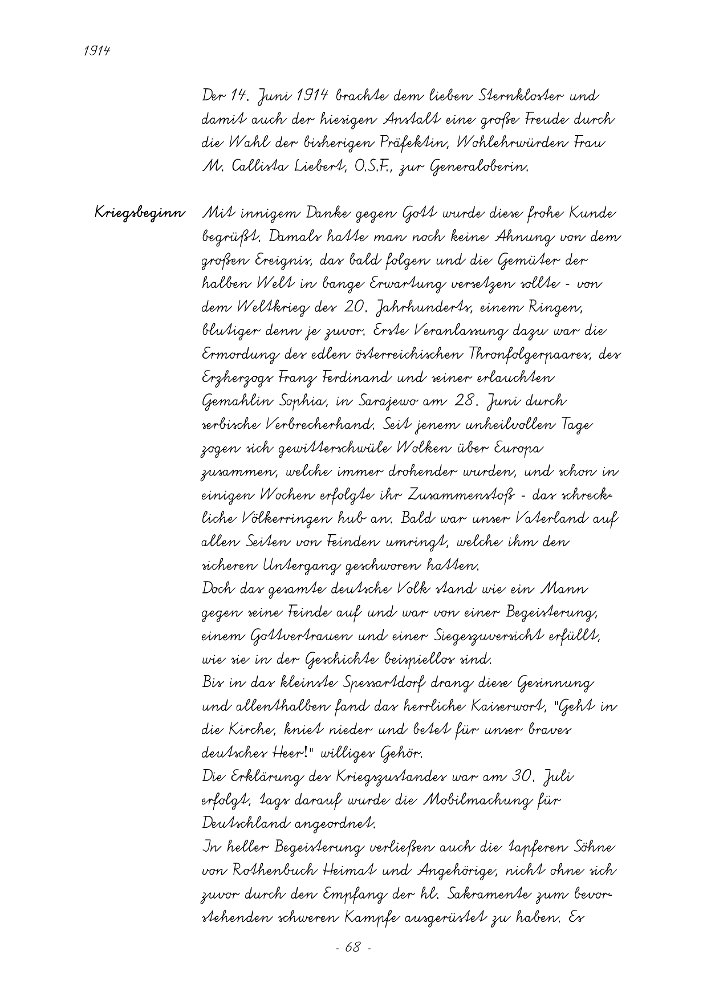 1914
Der 14. Juni 1914 brachte dem lieben Sternkloster und
damit auch der hiesigen Anstalt eine große Freude durch
die Wahl der bisherigen Präfektin, Wohlehrwürden Frau
M. Callista Liebert, O.S.F., zur Generaloberin.
Kriegsbeginn
Mit innigem Danke gegen Gott wurde diese frohe Kunde
begrüßt. Damals hatte man noch keine Ahnung von dem
großen Ereignis, das bald folgen und die Gemüter der
halben Welt in bange Erwartung versetzen sollte - von
dem Weltkrieg des 20. Jahrhunderts, einem Ringen,
blutiger denn je zuvor. Erste Veranlassung dazu war die
Ermordung des edlen österreichischen Thronfolgerpaares, des
Erzherzogs Franz Ferdinand und seiner erlauchten
Gemahlin Sophia, in Sarajewo am 28. Juni durch
serbische Verbrecherhand. Seit jenem unheilvollen Tage
zogen sich gewitterschwüle Wolken über Europa
zusammen, welche immer drohender wurden, und schon in
einigen Wochen erfolgte ihr Zusammenstoß - das schreck-
liche Völkerringen hub an. Bald war unser Vaterland auf
allen Seiten von Feinden umringt, welche ihm den
sicheren Untergang geschworen hatten.
Doch das gesamte deutsche Volk stand wie ein Mann
gegen seine Feinde auf und war von einer Begeisterung,
einem Gottvertrauen und einer Siegeszuversicht erfüllt,
wie sie in der Geschichte beispiellos sind.
Bis in das kleinste Spessartdorf drang diese Gesinnung
und allenthalben fand das herrliche Kaiserwort, "Geht in
die Kirche, kniet nieder und betet für unser braves
deutsches Heer!" williges Gehör.
Die Erklärung des Kriegszustandes war am 30. Juli
erfolgt, tags darauf wurde die Mobilmachung für
Deutschland angeordnet.
In heller Begeisterung verließen auch die tapferen Söhne
von Rothenbuch Heimat und Angehörige, nicht ohne sich
zuvor durch den Empfang der hl. Sakramente zum bevor-
stehenden schweren Kampfe ausgerüstet zu haben. Es
- 68 -